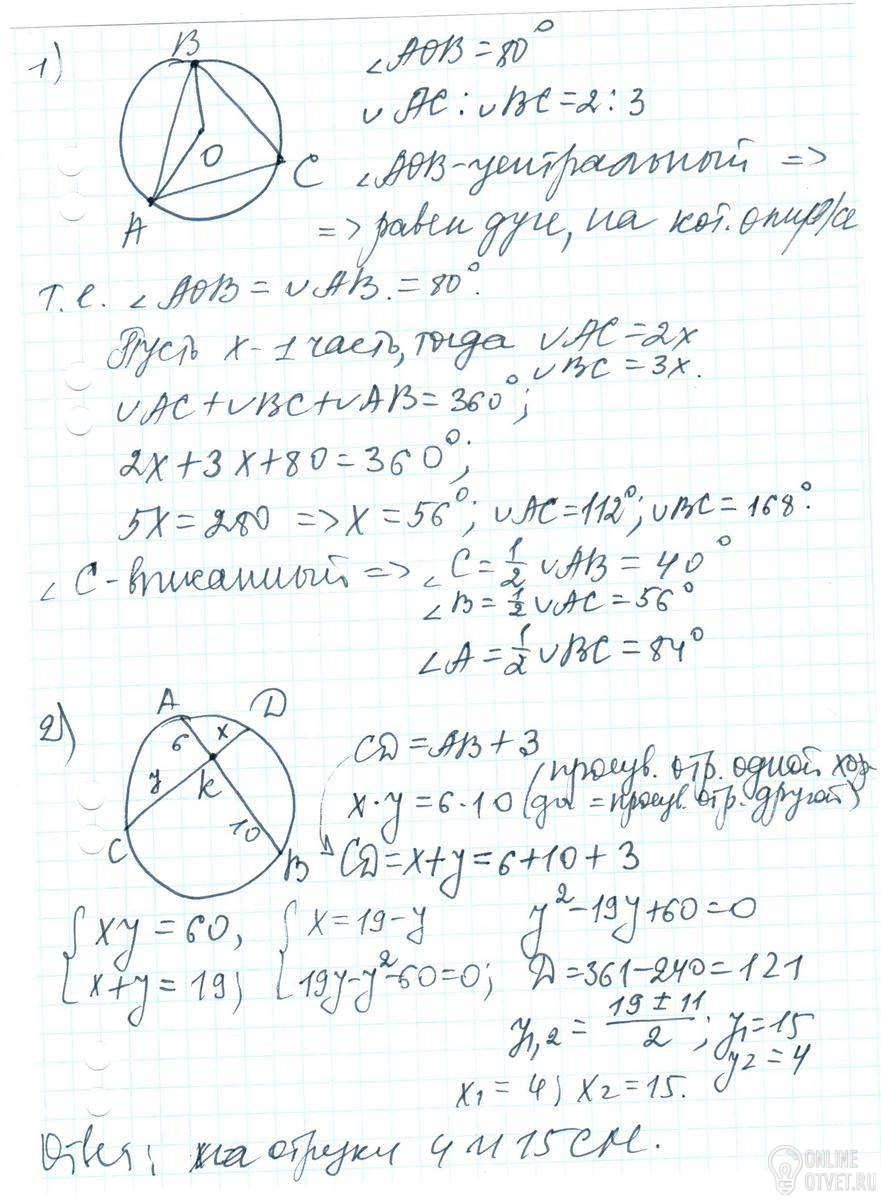 1)
B
O
C
A
∠AOB = 80°
∪AC : ∪BC = 2 : 3
∠AOB - центральный =>
=> равен дуге, на кот. опир-ся
т.е. ∠AOB = ∪AB = 80°.
Пусть x - 1 часть, тогда ∪AC = 2x
∪BC = 3x.
∪AC + ∪BC + ∪AB = 360°;
2x + 3x + 80 = 360°;
5x = 280 => x = 56°; ∪AC = 112°; ∪BC = 168°.
∠C - вписанный => ∠C = 1/2 ∪AB = 40°
∠B = 1/2 ∪AC = 56°
∠A = 1/2 ∪BC = 84°
2)
A
D
6
x
y
K
10
C
B
CD = AB + 3
x·y = 6·10 (произв. отр. одной хор-
ды = произв. отр. другой)
CD = x + y = 6 + 10 + 3
{ xy = 60, { x = 19 - y y² - 19y + 60 = 0
x + y = 19; 19y - y² - 60 = 0; D = 361 - 240 = 121
y1,2 = (19 ± 11)/2; y1 = 15
y2 = 4
x1 = 4; x2 = 15.
Ответ: на отрезки 4 и 15 см.
ONLINE
OTVET.RU